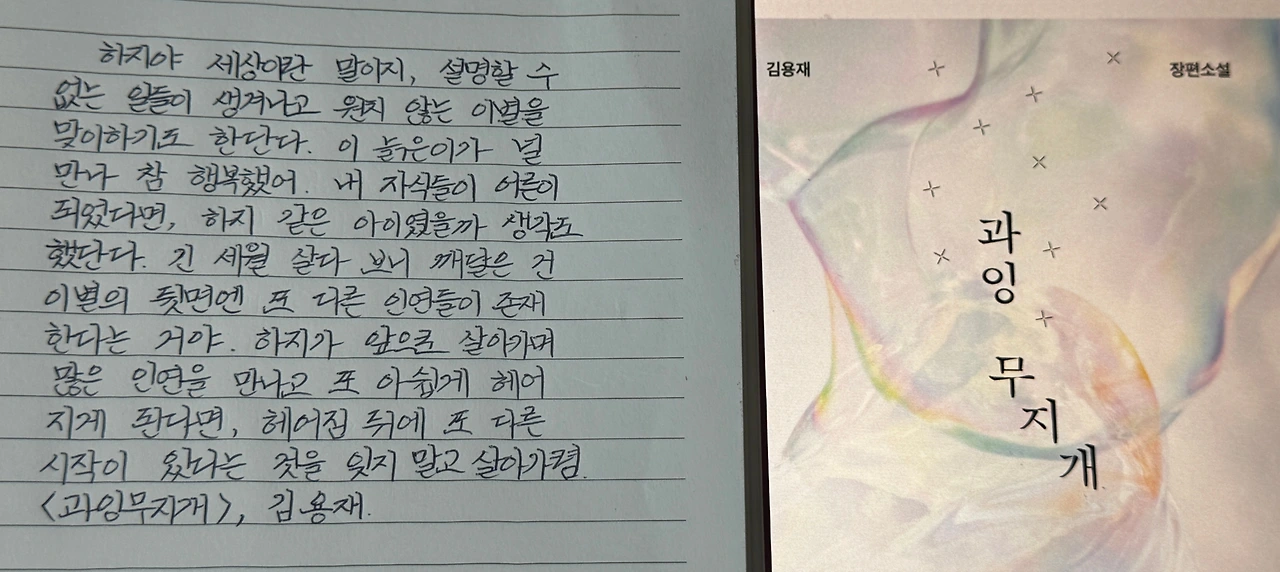 하지야 세상이란 말이지, 설명할 수
없는 일들이 생겨나고 원치 않는 이별을
맞이하기도 한단다. 이 늙은이가 널
만나 참 행복했어. 내 자식들이 어른이
되었다면, 하지 같은 아이였을까 생각도
했단다. 긴 세월 살다 보니 깨달은 건
이별의 뒷면엔 또 다른 인연들이 존재
한다는 거야. 하지가 앞으로 살아가며
많은 인연을 만나고 또 아쉽게 헤어
지게 된다면, 헤어짐 뒤에 또 다른
시작이 있다는 것을 잊지 말고 살아가렴.
<과잉무지개>, 김용재.
김용재
장편소설
과잉
무지개